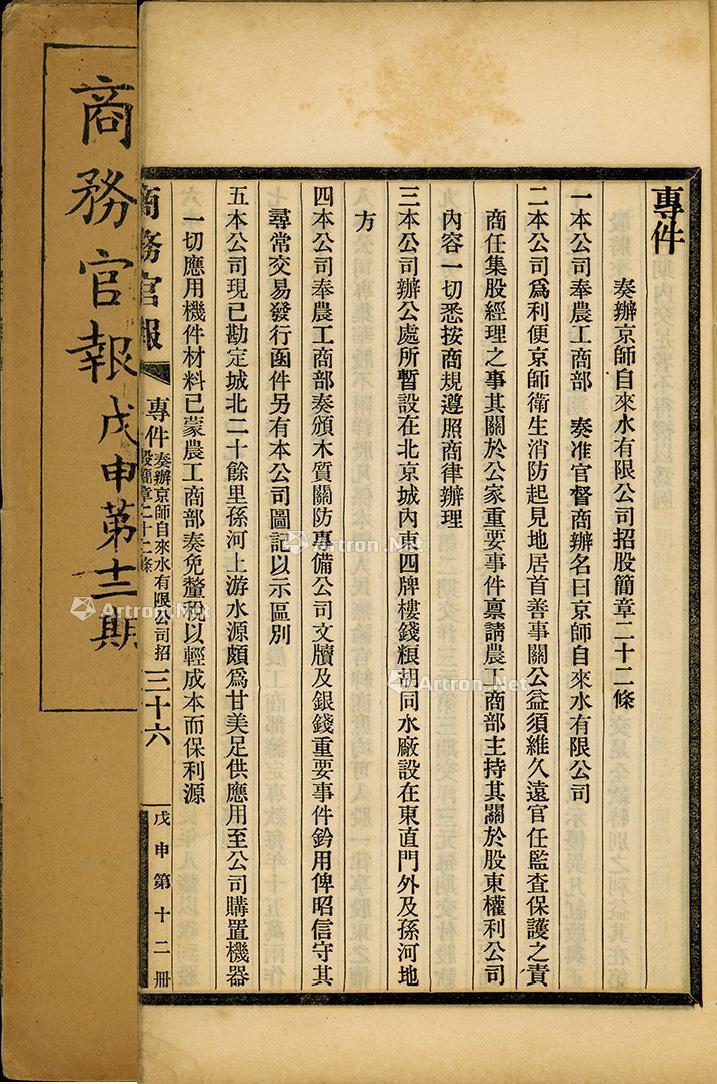 專件
奏辦京師自來水有限公司招股簡章二十二條
一本公司奉農工商部　奏准官督商辦名曰京師自來水有限公司
二本公司爲利便京師衛生消防起見地居首善事關公益須維久遠官任監查保護之責
商任集股經理之事其關於公家重要事件稟請農工商部主持其關於股東權利公司
內容一切悉按商規遵照商律辦理
三本公司辦公處所暫設在北京城內東四牌樓錢粮胡同水廠設在東直門外及孫河地
方
四本公司奉農工商部奏頒木質關防專備公司文牘及銀錢重要事件鈐用俾昭信守其
尋常交易發行函件另有本公司圖記以示區別
五本公司現已勘定城北二十餘里孫河上游水源頗爲甘美足供應用至公司購置機器
一切應用機件材料已蒙農工商部奏免釐稅以輕成本而保利源
商務官報
專件
奏辦京師自來水有限公司招
股簡章二十二條
三十六
戊申第十二冊
商務官報戊申第十二期
Artron.Net
Artron.Net
Artron.Net